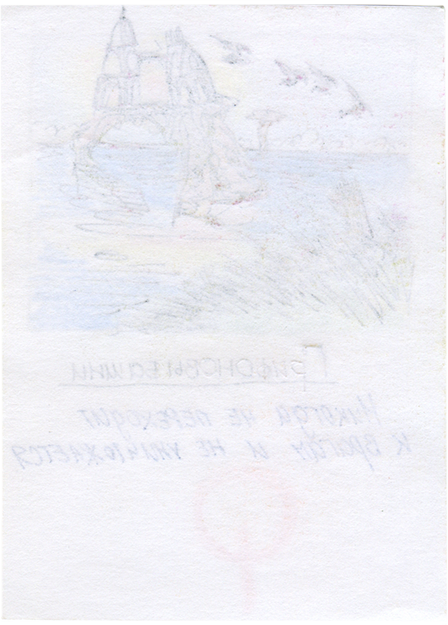 Грифоновы башни
Никогда не переходит
к врагам и не уничтожается